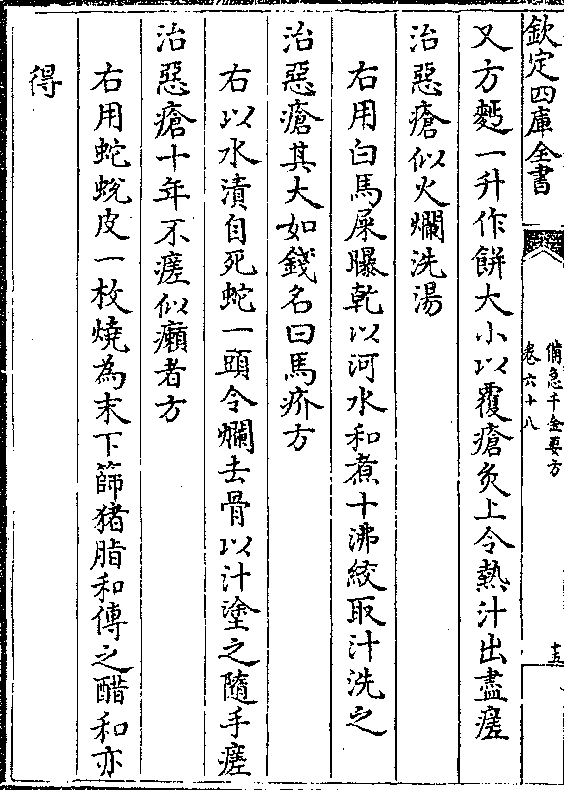 欽定四庫全書
備急千金要方
卷六十八
十五
又方麫一升作餅大小以覆瘡灸上令熱汁出盡瘥
治惡瘡似火爛洗湯
右用白馬屎曝乾以河水和煮十沸絞取汁洗之
治惡瘡其大如錢名曰馬疥方
右以水漬自死蛇一頭令爛去骨以汁塗之隨手瘥
治惡瘡十年不瘥似癩者方
右用蛇蛻皮一枚燒為末下篩猪脂和傅之醋和亦
得